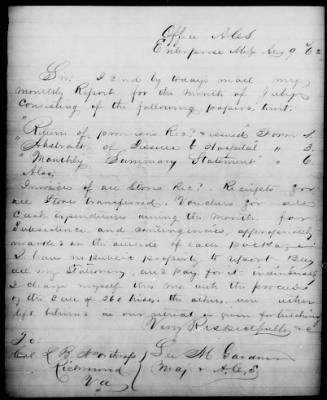 Office A.C.S.
Enterprise Miss Aug 9 62
Sir: I send by todays mail my
monthly Report for the month of July
Consisting of the following papers, towit.
"Return of provisions Rec? & issued" Form 1.
"Abstrats of Issues to Hospital " 3.
"Monthly Summary Statement" " 6.
Also,
Invoices of all Stores Rec? - Receipts for
all Stores transferred. Vouchers for all
Cash expenditures during the Month for
Subsistence and contingencies, appropriately
marked on the outside of each package.
I have no public property to report. Buy
all my Stationery, and pay for it individually
I charge myself this mo. with the proceeds
of the Sale of 260 hides the others were either
left behind as our or given for butchering
Very Respectfully &c
To
Col. L. B. Northrop
Richmond
Va
Geo M Gardner
Maj & A.C.S.